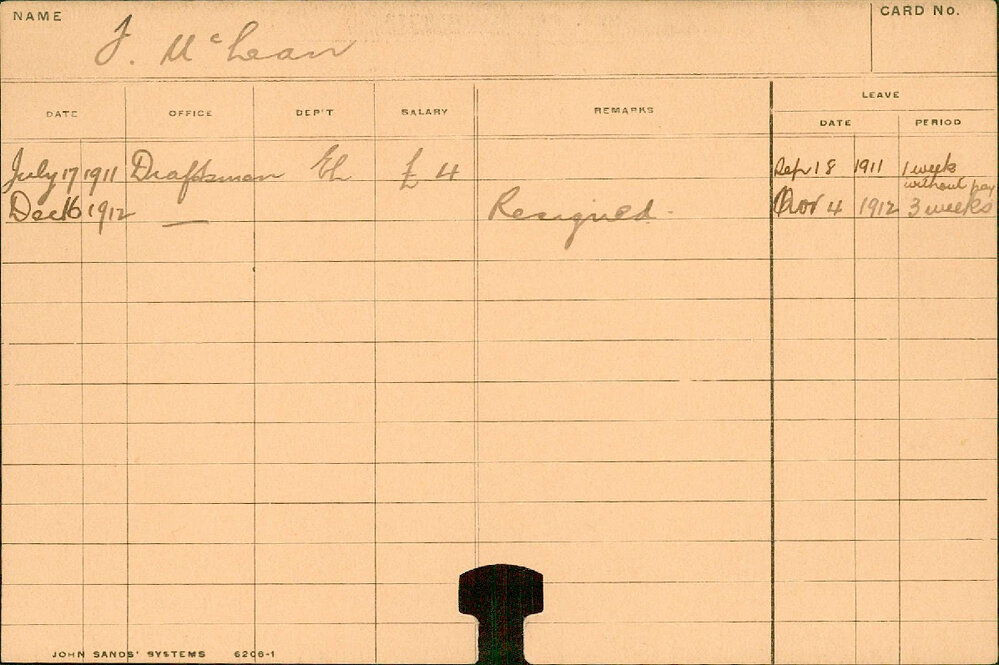 NAME
J. McLean
CARD No.
DATE OFFICE DEP'T SALARY REMARKS LEAVE
DATE PERIOD
July 17 1911 Draftsman £ 4 Sep 18 1911 1 week
without pay
Dec 16 1912 — Resigned. Nov 4 1912 3 weeks
JOHN SANDS' SYSTEMS 6206-1